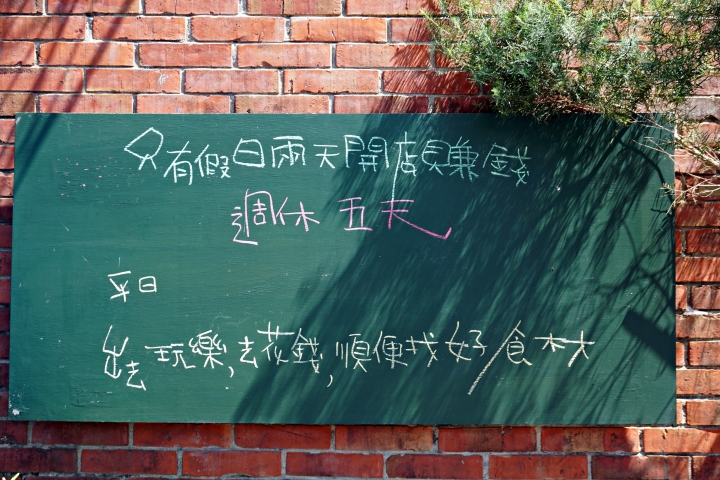 只有假日兩天開店賺錢
週休五天
平日
出去玩樂,去花錢,順便找好食材